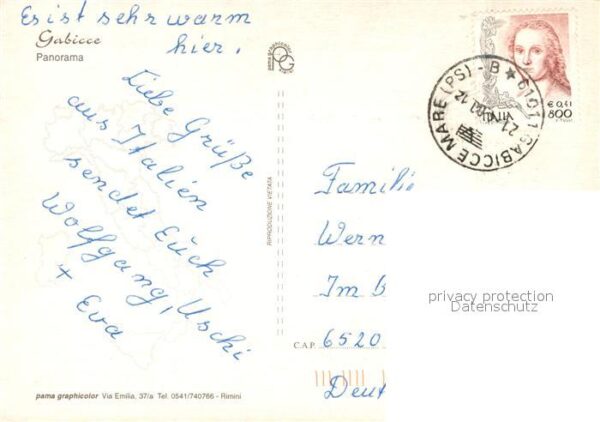 Es ist sehr warm
hier.
Gabicce
Panorama
Liebe Grüße
aus Italien
sendet Euch
Wolfgang, Uschi
+ Eva
pama graphicolor
RIPRODUZIONE VIETATA
61011 GABICCE MARE (PS) - B
€ 0,41
800
Familie
Wern
Im B
C.A.P. 6520
Deut
privacy protection
Datenschutz
pama graphicolor Via Emilia, 37/a Tel. 0541/740766 - Rimini